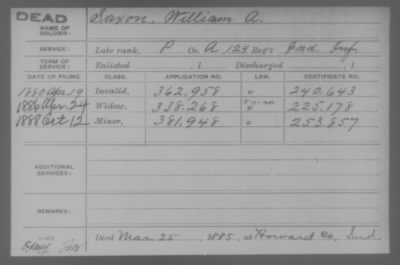 DEAD
NAME OF SOLDIER: Saxon, William A.
SERVICE: Late rank, P Co. A, 124 Reg't Ind. Inf
TERM OF SERVICE: Enlisted , 1 Discharged , 1
DATE OF FILING. CLASS. APPLICATION NO. LAW. CERTIFICATE NO.
1880 Apr. 19 Invalid, 362,958 o 240.643
1886 Apr. 24 Widow, 338.268 o 225.178
1888 Oct 12 Minor, 381.948 o 253.857
ADDITIONAL SERVICES:
REMARKS:
Died Mar. 25, 1885, at Howard Co, Ind.